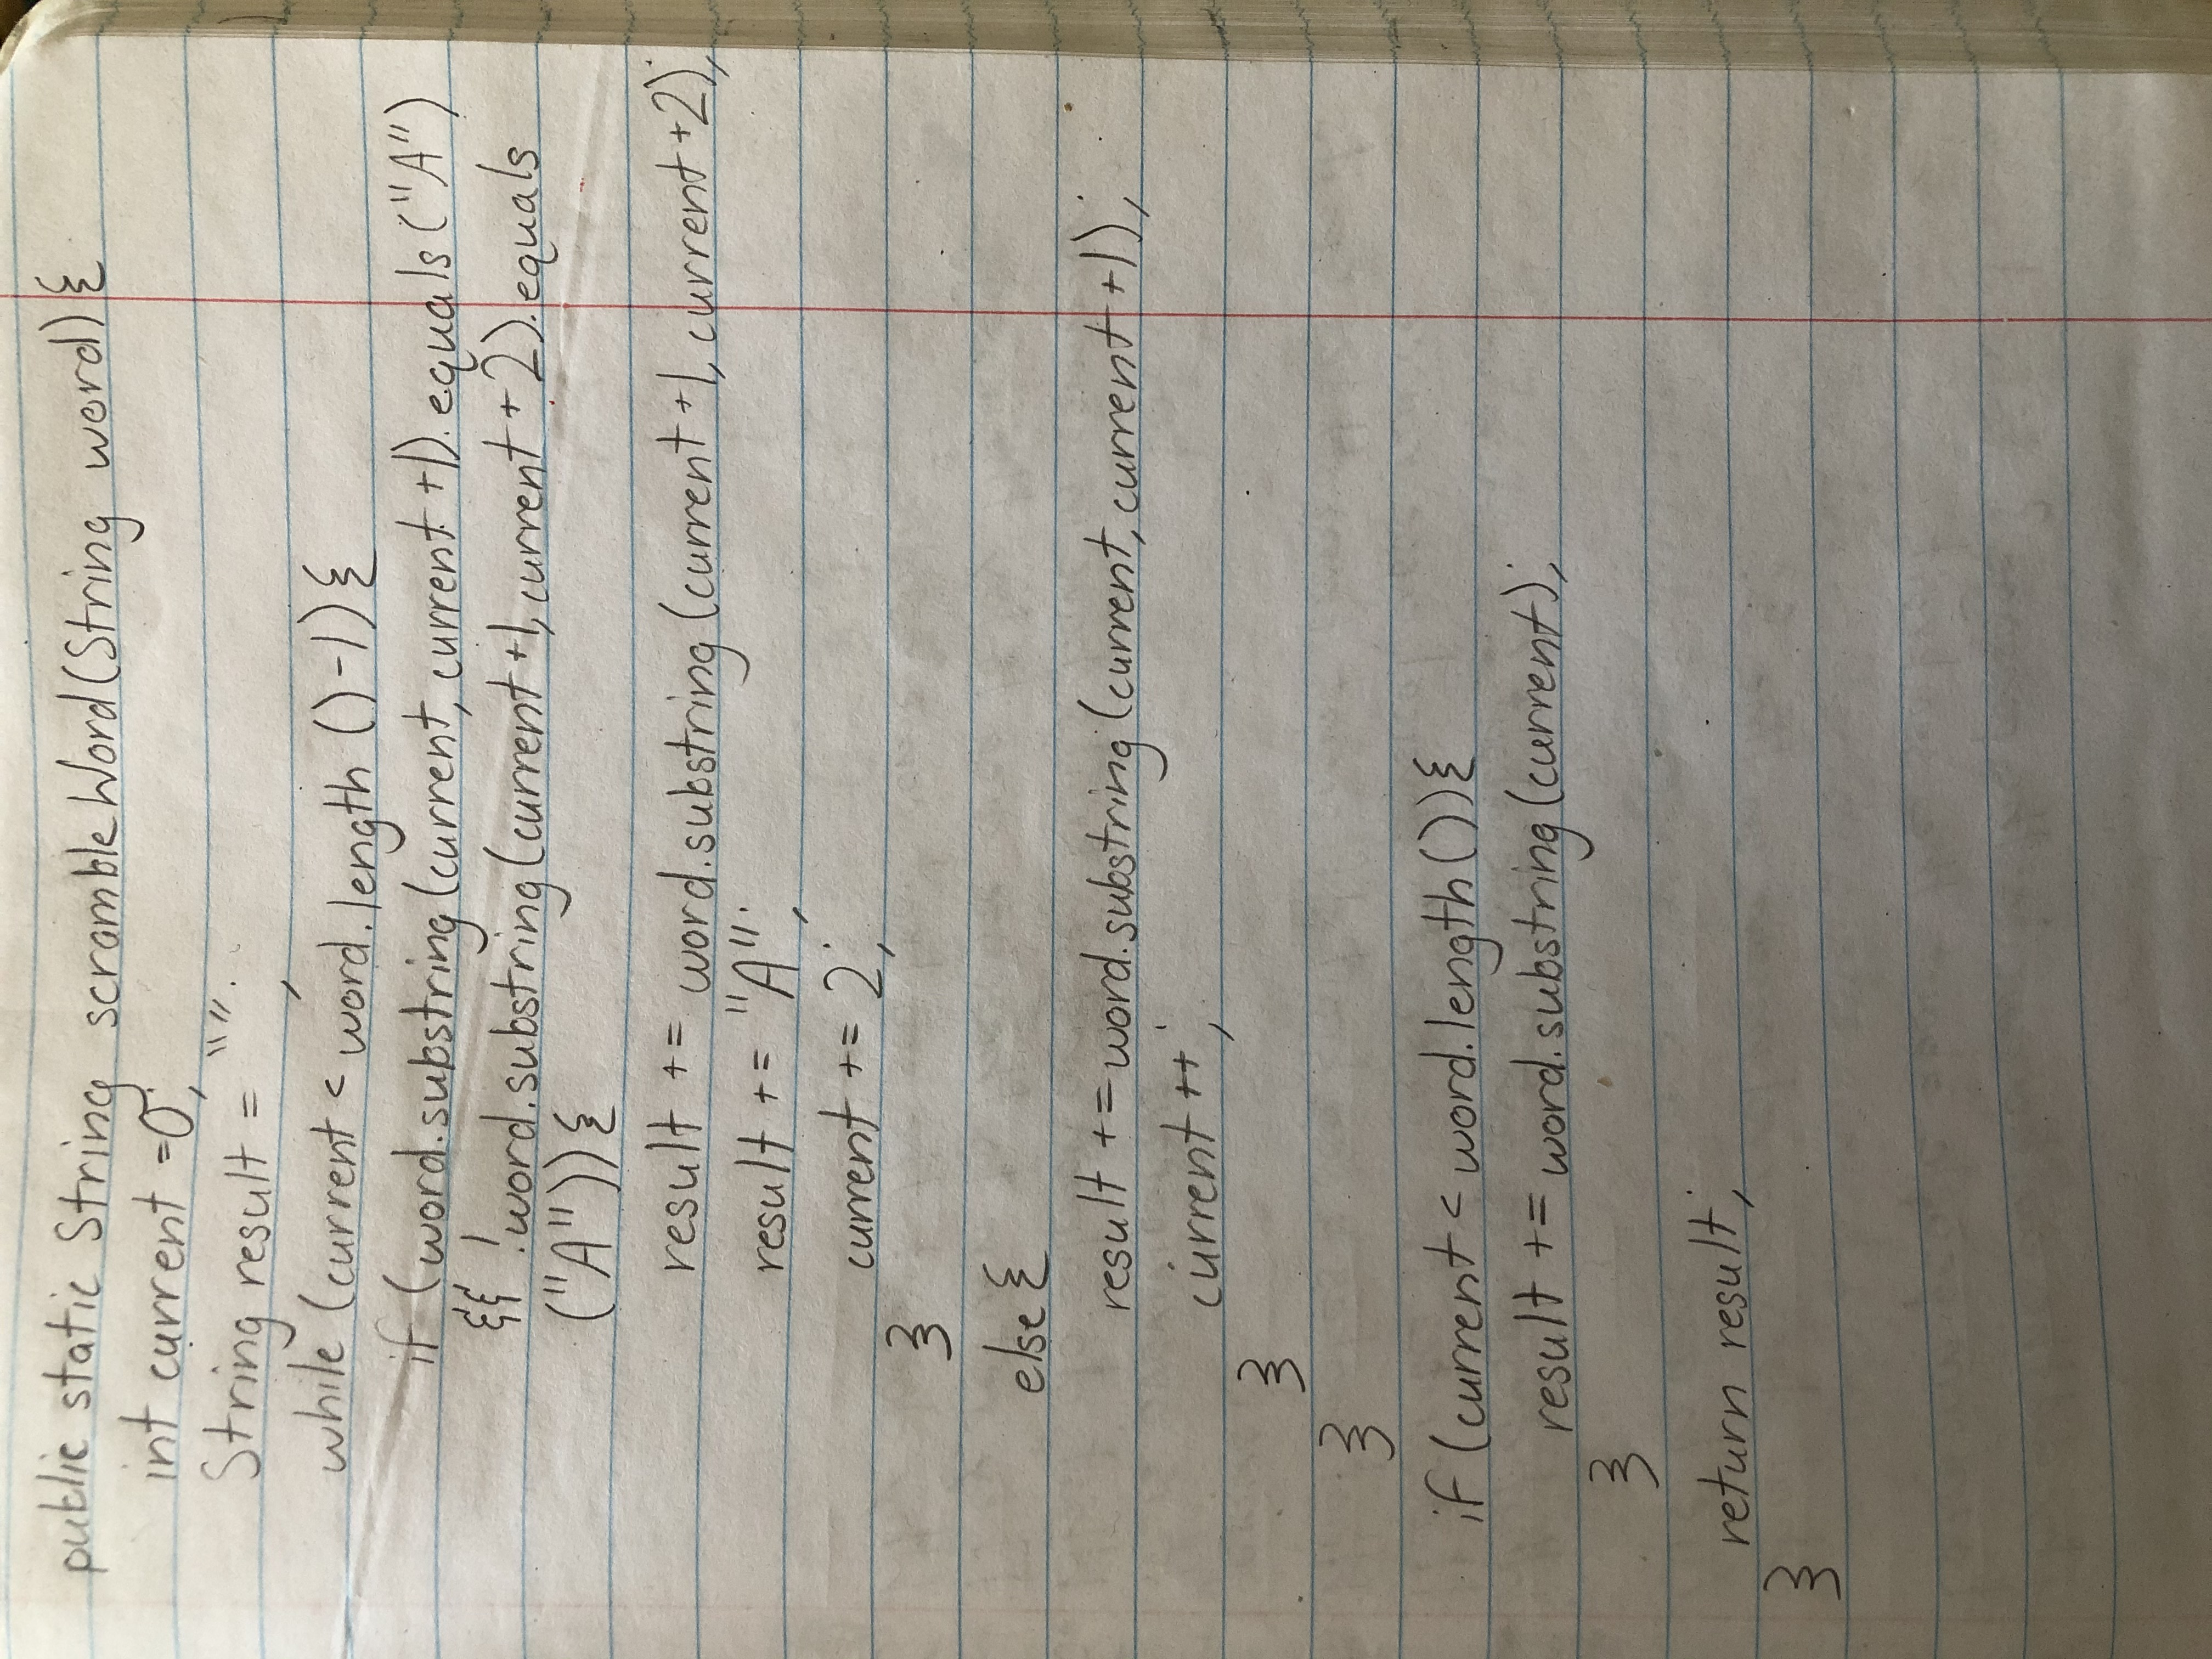 public static String scrambleWord(String word){
int current =0;
String result = "";
while (current < word.length()-1){
if (word.substring(current, current +1).equals("A")
&& !word.substring(current+1, current + 2).equals
("A")){
result += word.substring(current+1, current+2);
result += "A";
current += 2;
}
else{
result += word.substring(current, current+1);
current++;
}
}
if (current < word.length()){
result += word.substring(current);
}
return result;
}